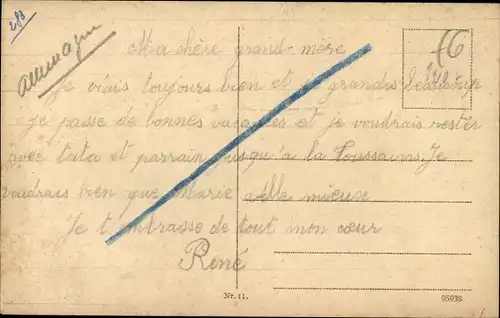 283
allemagne
16
Ma chère grand-mère
Je vais toujours bien et je grandis beaucoup
je passe de bonnes vacances et je voudrais rester
avec tata et parrain jusqu'à la Toussains. Je
voudrais bien que Marie aille mieuse
Je t'embrasse de tout mon cœur
René
Nr. 11.
95938